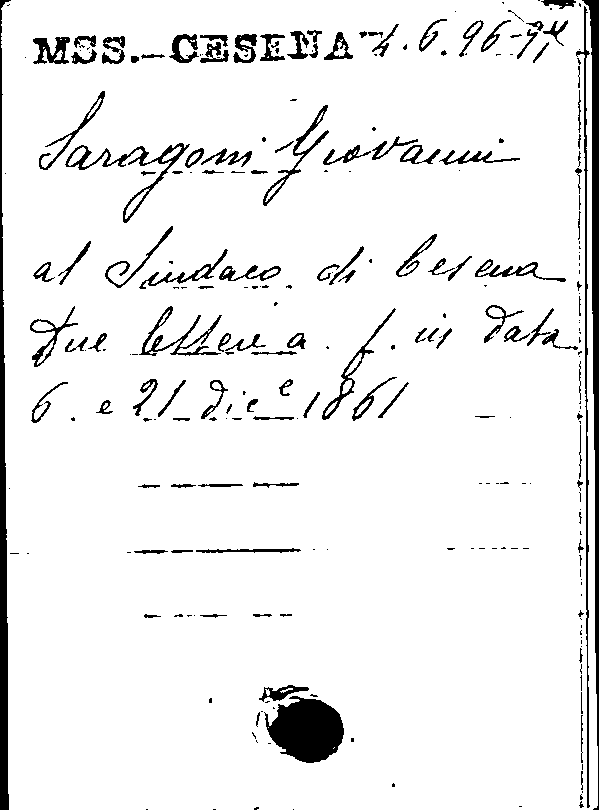 MSS.-CESENA 4.6.96-97
Saragoni Giovanni
al Sindaco di Cesena
Due lettere a. f. in data
6. e 21 dicᵉ 1861